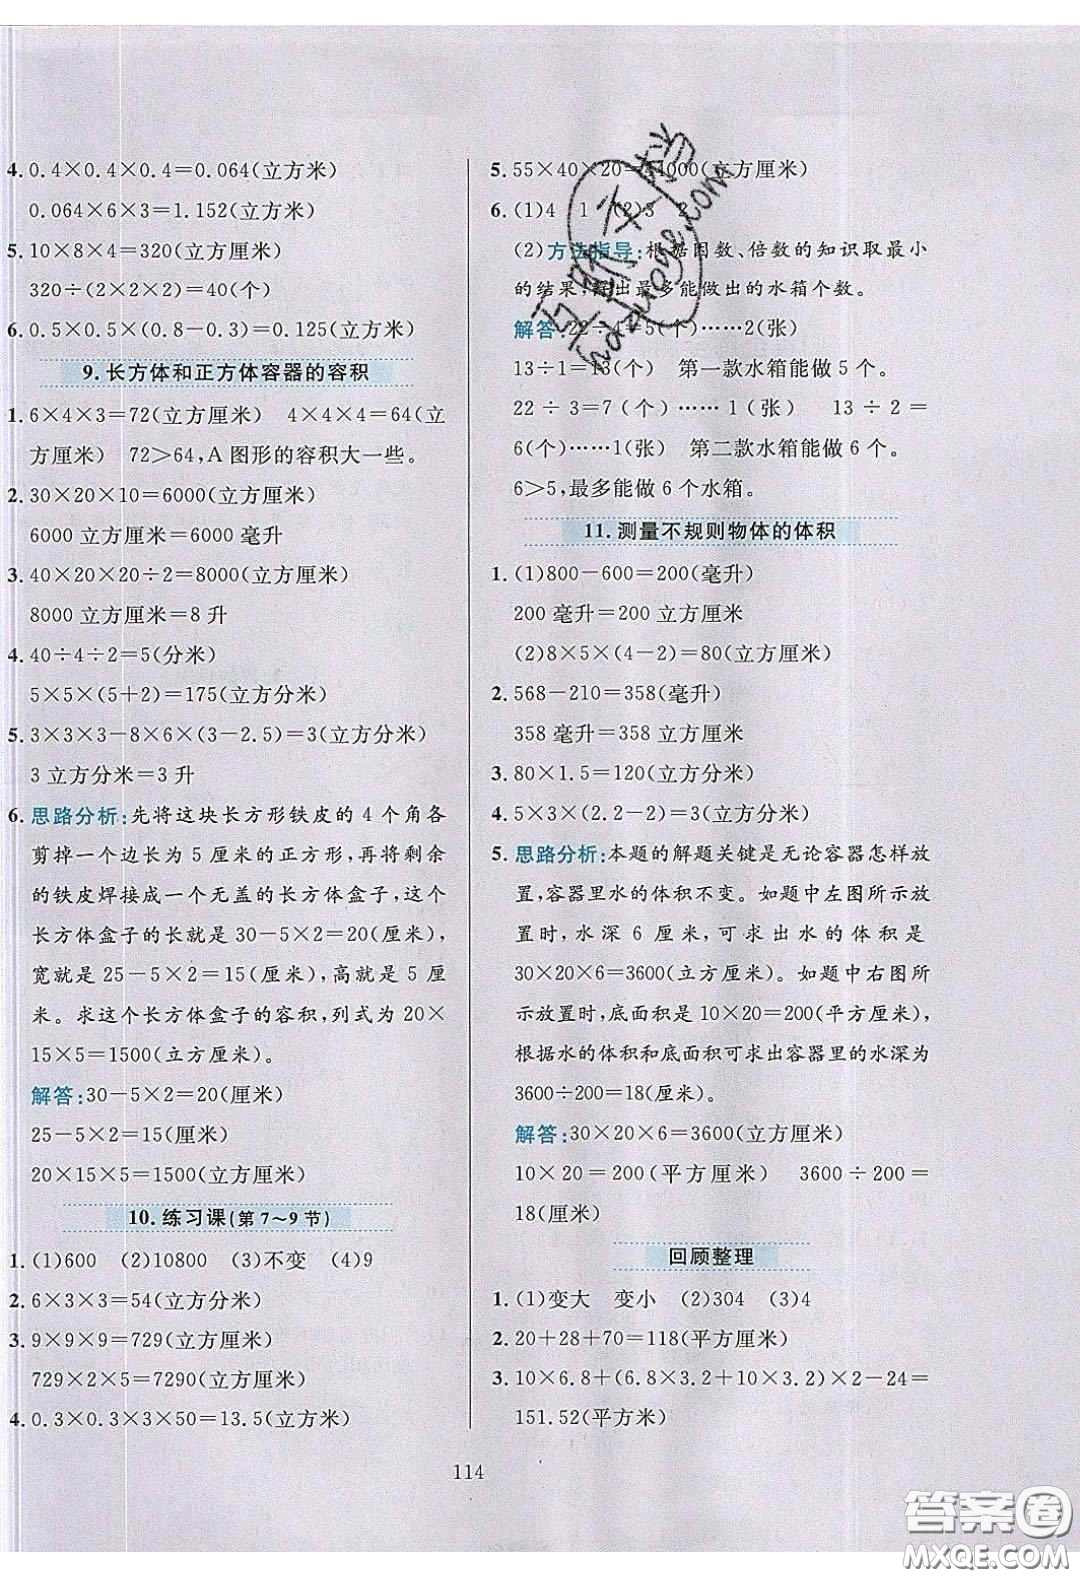 4. 0.4×0.4×0.4=0.064(立方米)
0.064×6×3=1.152(立方米)
5. 10×8×4=320(立方厘米)
320÷(2×2×2)=40(个)
6. 0.5×0.5×(0.8-0.3)=0.125(立方米)
9.长方体和正方体容器的容积
1. 6×4×3=72(立方厘米) 4×4×4=64(立
方厘米) 72>64,A图形的容积大一些。
2. 30×20×10=6000(立方厘米)
6000立方厘米=6000毫升
3. 40×20×20÷2=8000(立方厘米)
8000立方厘米=8升
4. 40÷4÷2=5(分米)
5×5×(5+2)=175(立方分米)
5. 3×3×3-8×6×(3-2.5)=3(立方分米)
3立方分米=3升
6. 思路分析:先将这块长方形铁皮的4个角各
剪掉一个边长为5厘米的正方形,再将剩余
的铁皮焊接成一个无盖的长方体盒子,这个
长方体盒子的长就是30-5×2=20(厘米),
宽就是25-5×2=15(厘米),高就是5厘
米。求这个长方体盒子的容积,列式为20×
15×5=1500(立方厘米)。
解答:30-5×2=20(厘米)
25-5×2=15(厘米)
20×15×5=1500(立方厘米)
10.练习课(第7~9节)
1. (1)600 (2)10800 (3)不变 (4)9
2. 6×3×3=54(立方分米)
3. 9×9×9=729(立方厘米)
729×2×5=7290(立方厘米)
4. 0.3×0.3×3×50=13.5(立方米)
5. 55×40×20=44000(立方厘米)
6. (1)4 1 (2)3 2
(2)方法指导:根据因数、倍数的知识取最小
的结果,得出最多能做出的水箱个数。
解答:22÷4=5(个)……2(张)
13÷1=13(个) 第一款水箱能做5个。
22÷3=7(个)……1(张) 13÷2=
6(个)……1(张) 第二款水箱能做6个。
6>5,最多能做6个水箱。
11.测量不规则物体的体积
1. (1)800-600=200(毫升)
200毫升=200立方厘米
(2)8×5×(4-2)=80(立方厘米)
2. 568-210=358(毫升)
358毫升=358立方厘米
3. 80×1.5=120(立方分米)
4. 5×3×(2.2-2)=3(立方分米)
5. 思路分析:本题的解题关键是无论容器怎样放
置,容器里水的体积不变。如题中左图所示放
置时,水深6厘米,可求出水的体积是
30×20×6=3600(立方厘米)。如题中右图所
示放置时,底面积是10×20=200(平方厘米),
根据水的体积和底面积可求出容器里的水深为
3600÷200=18(厘米)。
解答:30×20×6=3600(立方厘米)
10×20=200(平方厘米) 3600÷200=
18(厘米)
回顾整理
1. (1)变大 变小 (2)304 (3)4
2. 20+28+70=118(平方厘米)
3. 10×6.8+(6.8×3.2+10×3.2)×2-24=
151.52(平方米)
114
答案圈
MXQE.COM